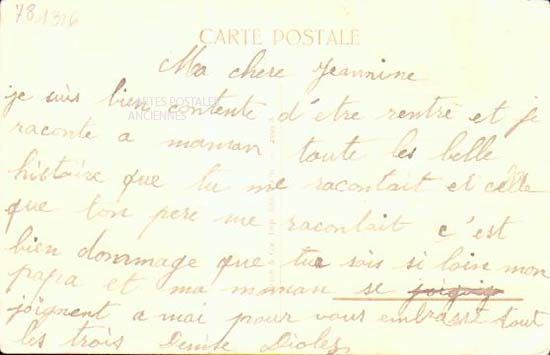 781326
CARTE POSTALE
CARTES POSTALES
ANCIENNES
Ma chere Jeannine
je suis bien contente d'etre rentré et je
raconte a maman toute les belle
histoire que tu me racontait et celle
que ton pere me racontait c'est
bien dommage que tu sois si loin mon
papa et ma maman se
joignent a moi pour vous embrasse tout
les trois Denise Dioley